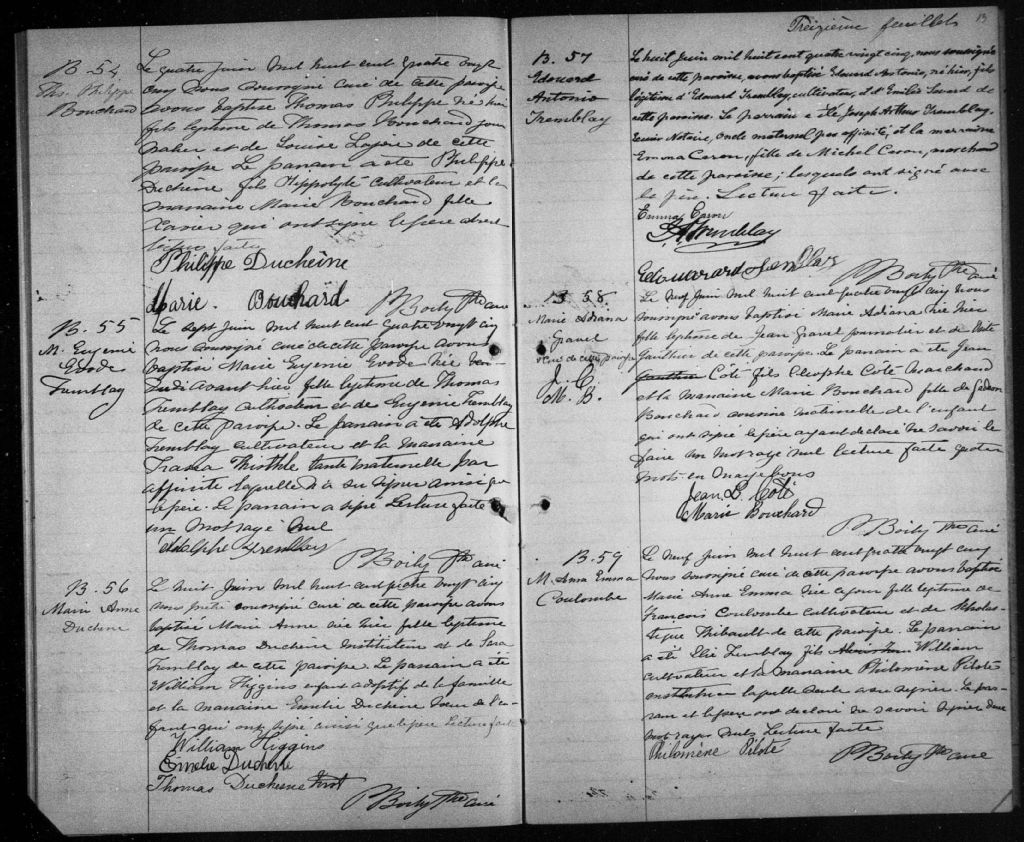 B. 54
Ths. Philippe
Bouchard
Le quatre Juin mil huit cent quatre vingt
cinq nous soussigné curé de cette paroisse
avons baptisé Thomas Philippe né hier
fils légitime de Thomas Bouchard jour
nalier et de Louise Lajoie de cette
paroisse. Le parrain a été Philippe
Duchène fils Hippolyte cultivateur et la
marraine Marie Bouchard fille
Xavier qui ont signé le père absent
faite
Philippe Ducheine
Marie. Bouchard
P Boily Ptre curé
B. 55
M. Eugenie
Evode
Tremblay
Le sept Juin mil huit cent quatre vingt cinq
nous soussigné curé de cette paroisse avons
baptisé Marie Eugenie Evode née ven
dredi avant hier fille légitime de Thomas
Tremblay cultivateur et de Eugenie Tremblay
de cette paroisse. Le parrain a été Adolphe
Tremblay cultivateur et la marraine
tante maternelle par
affinité laquelle n'a su signer ainsi que
le père. Le parrain a signé Lecture faite
un mot rayé nul
Adolphe Tremblay
P Boily Ptre curé
B. 56
Marie Anne
Duchene
Le huit Juin mil huit cent quatre vingt cinq
nous soussigné curé de cette paroisse avons
baptisé Marie Anne née hier fille légitime
de Thomas Duchène Instituteur et de Sara
Tremblay de cette paroisse. Le parrain a été
William Higgins enfant adoptif de la famille
et la marraine Emelie Duchène soeur de l'en-
fant qui ont signé ainsi que le père Lecture faite
William Higgins
Emelie Duchene
Thomas Duchesne
P Boily Ptre curé
Treizième feuillet
13
B. 57
Edouard
Antonio
Tremblay
Le huit Juin mil huit cent quatre vingt cinq, nous soussigné
curé de cette paroisse, avons baptisé Edouard Antonio, né hier, fils
légitime d'Edouard Tremblay, cultivateur, et d'Emilie Savard de
cette paroisse. Le parrain a été Joseph Arthur Tremblay,
Ecuier Notaire, oncle maternel par affinité, et la marraine
Emma Caron, fille de Michel Caron, marchand
de cette paroisse; lesquels ont signé avec
le père. Lecture faite.
Emma Caron
J A Tremblay
Edouard Tremblay
P Boily Ptre curé
B. 58.
Marie Adriana
Gravel
curé de cette paroisse
J. C.
M. B.
Le neuf Juin mil huit cent quatre vingt cinq nous
soussigné avons baptisé Marie Adriana née hier
fille légitime de Jean Gravel journalier et de
Gauthier de cette paroisse. Le parrain a été Jean
Gauthier Côté fils Cléophe Côté marchand
et la marraine Marie Bouchard fille de Gédéon
Bouchard cousine maternelle de l'enfant
qui ont signé le père ayant déclaré ne savoir le
faire un mot rayé nul lecture faite quatre
mots en marge bons
Jean B. Coté
Marie Bouchard
P Boily Ptre curé
B. 59
M. Anna Emma
Coulombe
Le neuf Juin mil huit cent quatre vingt cinq
nous soussigné curé de cette paroisse avons baptisé
Marie Anne Emma née ce jour fille légitime de
François Coulombe cultivateur et de Scholas-
tique Thibault de cette paroisse. Le parrain
a été Elie Tremblay fils William
cultivateur et la marraine Philomène Pilote
institutrice laquelle seule a su signer. Le par-
rain et le père ont déclaré ne savoir signer deux
mots rayés nuls Lecture faite
Philomène Pilote
P Boily Ptre curé